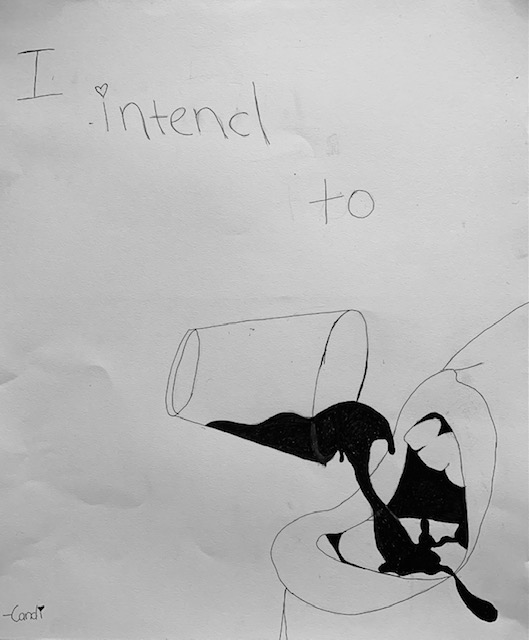 I
intend
to
-Candi